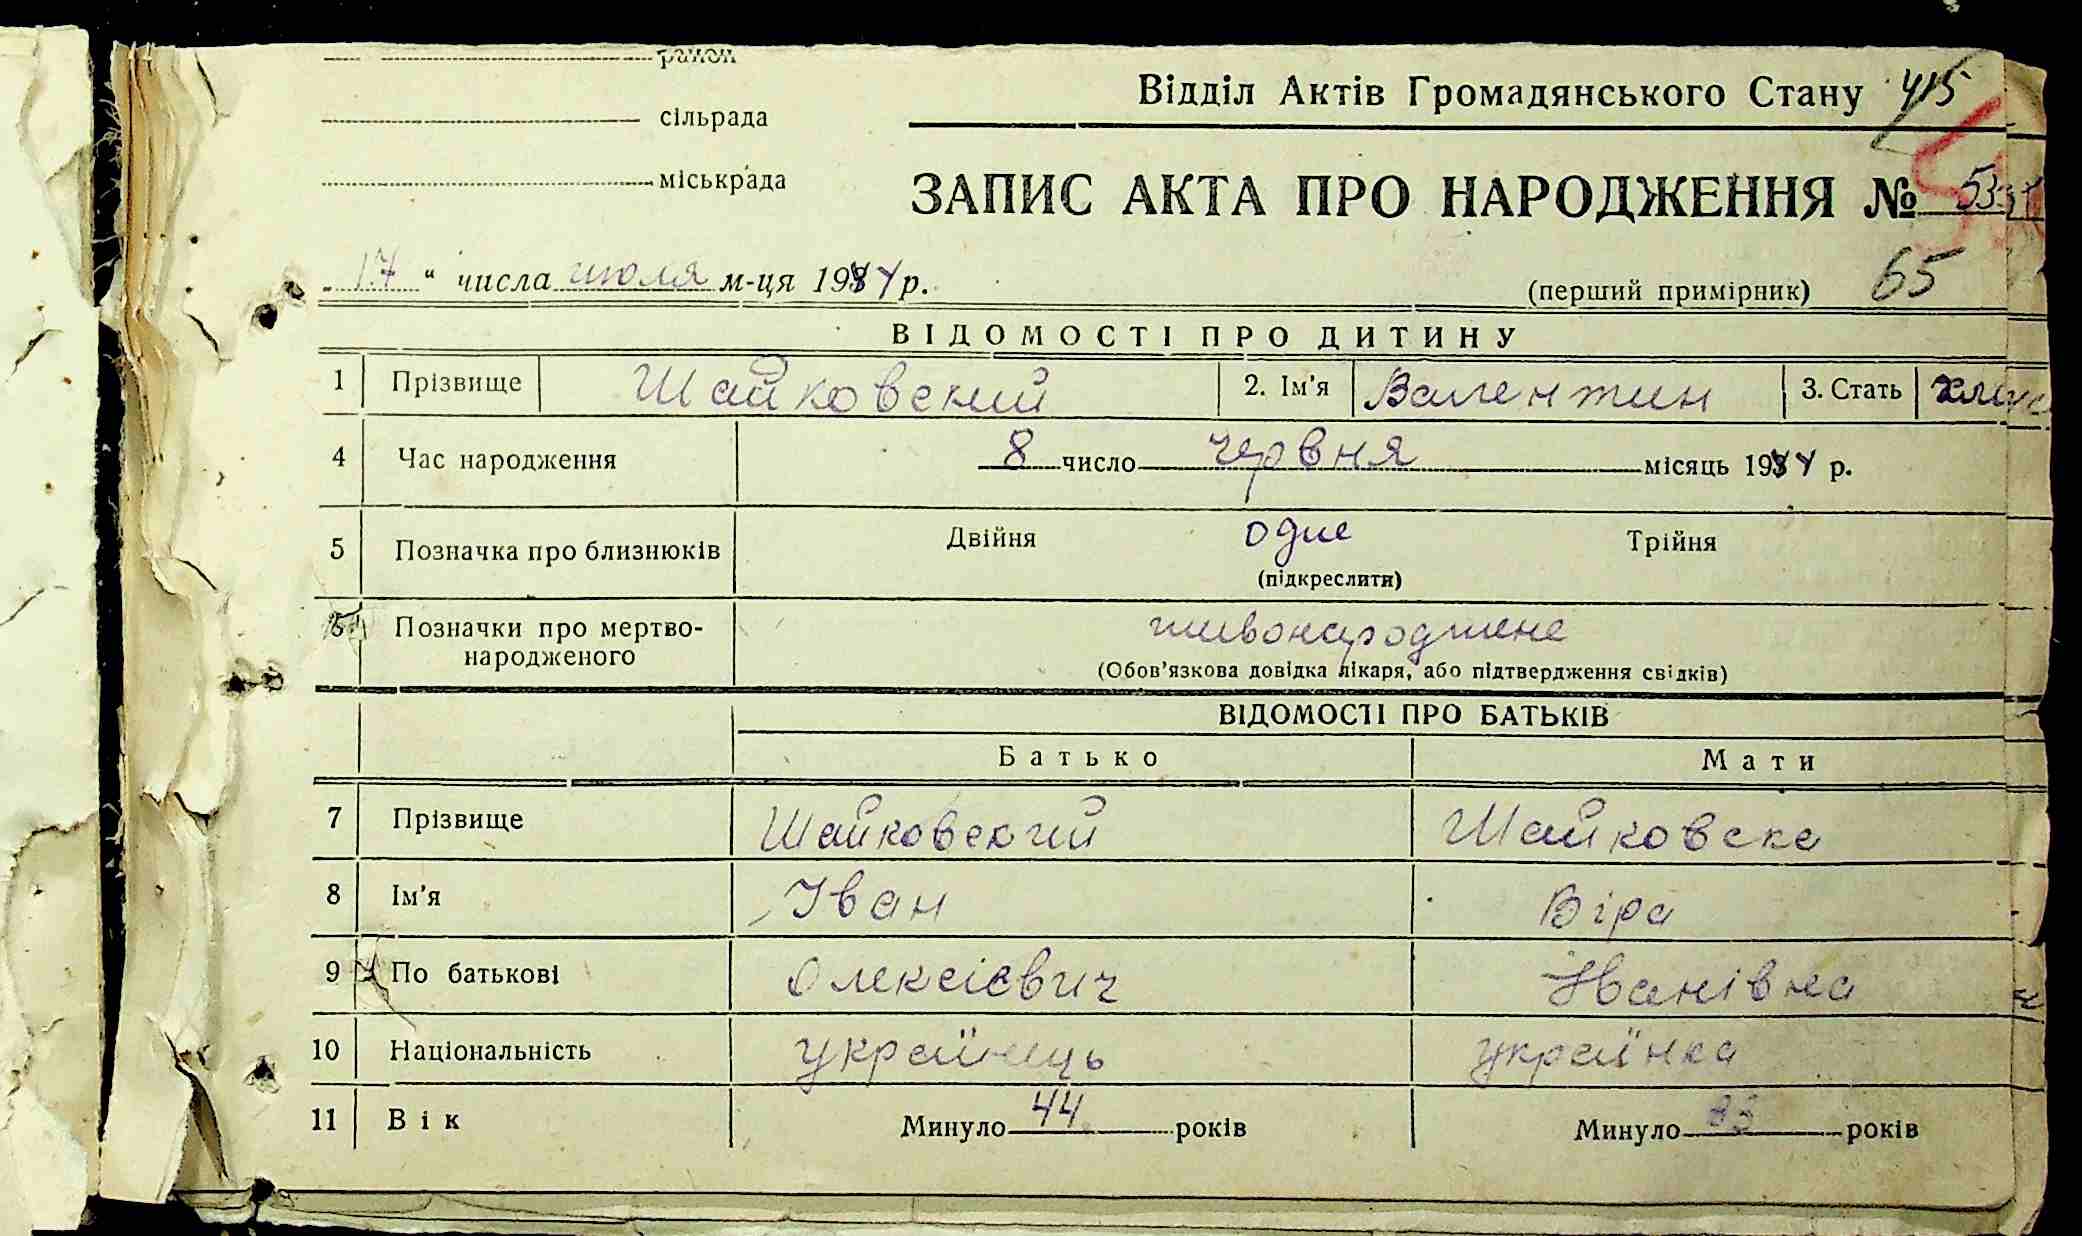 район
Відділ Актів Громадянського Стану 415
сільрада
міськрада
ЗАПИС АКТА ПРО НАРОДЖЕННЯ № 53
17 " числа июля м-ця 1944 р.
(перший примірник) 65
ВІДОМОСТІ ПРО ДИТИНУ
1 Прізвище Шайковский 2. Ім'я Валентин 3. Стать
4 Час народження 8 число червня місяць 1944 р.
5 Позначка про близнюків Двійня одне Трійня
(підкреслити)
Позначки про мертво- живонароджене
народженого (Обов'язкова довідка лікаря, або підтвердження свідків)
ВІДОМОСТІ ПРО БАТЬКІВ
Батько Мати
7 Прізвище Шайковский Шайковска
8 Ім'я Іван Віра
9 По батькові Олексієвич Иванівна
10 Національність українець українка
11 Вік Минуло 44 років Минуло років